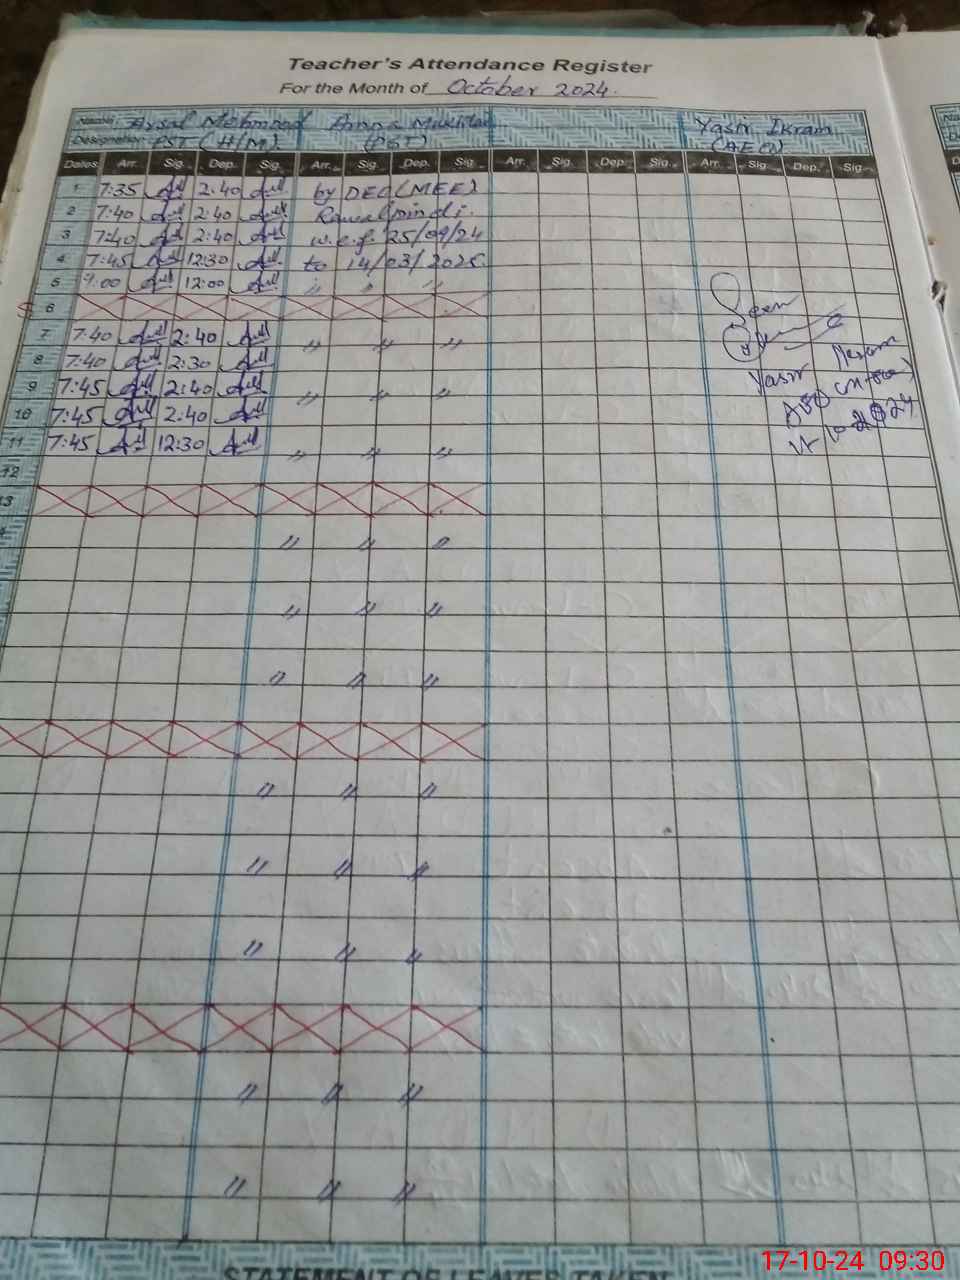 Teacher's Attendance Register
For the Month of October 2024.
Name: Mehmood Amna Yasir Ikram
Designation PST (H/M) (PST) (AEO)
Dates Arr. Sig. Dep. Sig. Arr. Sig. Dep. Sig. Arr. Sig. Dep. Sig. Arr. Sig. Dep. Sig.
1 7:35 2:40 by DEO (MEE)
2 7:40 2:40 Rawalpindi.
3 7:40 2:40 w.e.f. 25/09/24
4 7:45 12:30 to 14/03/2025
5 9:00 12:00 " " "
6
Seen
7 7:40 2:40 " " "
8 7:40 2:30
Yasir
9 7:45 2:40 " " "
AEO
10 7:45 2:40
11 7:45 12:30 " " "
12
13
" " "
" " "
" " "
" " "
" " "
" " "
" " "
" " "
STATEMENT OF LEAVES TAKEN
17-10-24 09:30